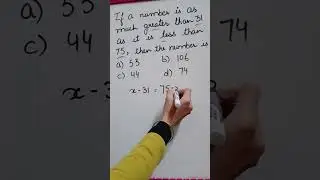 If a number is as
much greater than 31
as it is less than
75, then the number is
a) 53 b) 106
c) 44 d) 74
x - 31 = 75 - x